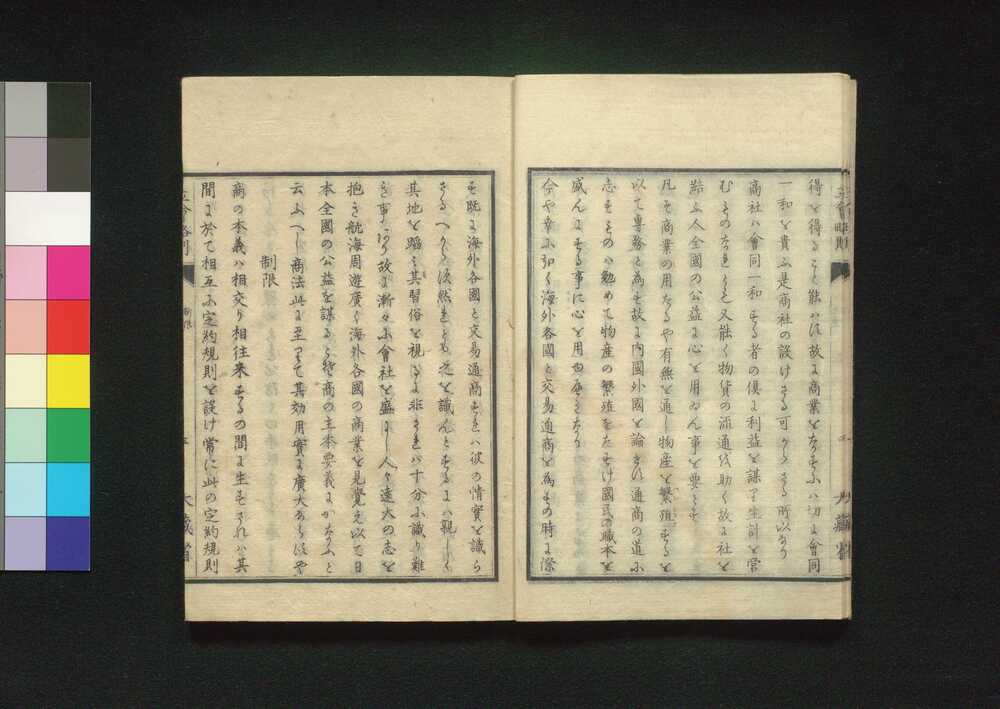 立會略則
大藏省
得を得ること能ハす故に商業をなすにハ切に會同
一和を貴ふ是商社の設けさる可からさる所以なり
商社ハ會同一和する者の倶に利益を謀り生計を営
むものなれとも又能く物貨の流通を助く故に社を
結ふ人全國の公益に心を用ゐん事を要とす
凡そ商業の用たるや有無を通し物産を繁殖するを
以て専務と為す故に内國外國を論せす通商の道に
志すものハ勉めて物産の繁殖をたすけ國民の職本を
盛んにする事に心を用ゆ
今や幸に弘く海外各國と交易通商を為すの時に際
す既に海外各國と交易通商すれハ彼の情實を識ら
さるへからす然れとも之を識んとするにハ親しく
其地を踏み其習俗を視るに非されハ十分に識り難
き事なり故に漸々に會社を盛にし人々遠大の志を
抱き航海周遊廣く海外各國の商業を見覺え以て日
本全國の公益を謀るこそ商の主本要義にかなふと
云ふへし商法此に至りて其効用實に廣大ならすや
制限
商の本義ハ相交り相往来するの間に生すされハ其
間に於て相互に定約規則を設け常に此の定約規則
立會略則
制限
大藏省